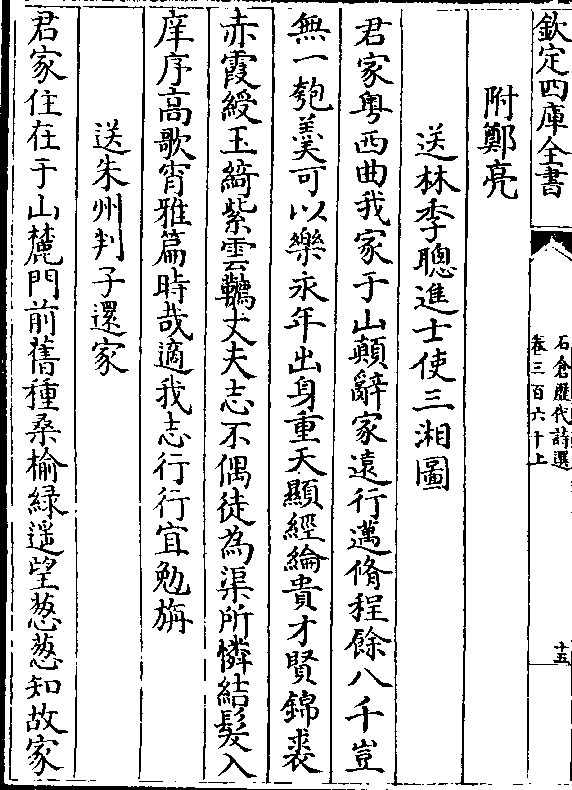 欽定四庫全書
石倉歷代詩選
卷三百六十上
十五
附鄭亮
送林季聰進士使三湘圖
君家粵西曲我家于山顛辭家遠行邁脩程餘八千豈
無一匏羹可以樂永年出身重天顯經綸貴才賢錦裘
赤霞綬玉綺紫雲韉丈夫志不偶徒為渠所憐結髮入
庠序高歌宵雅篇時哉適我志行行宜勉旃
送朱州判子還家
君家住在于山麓門前舊種桑榆綠遥望葱葱知故家